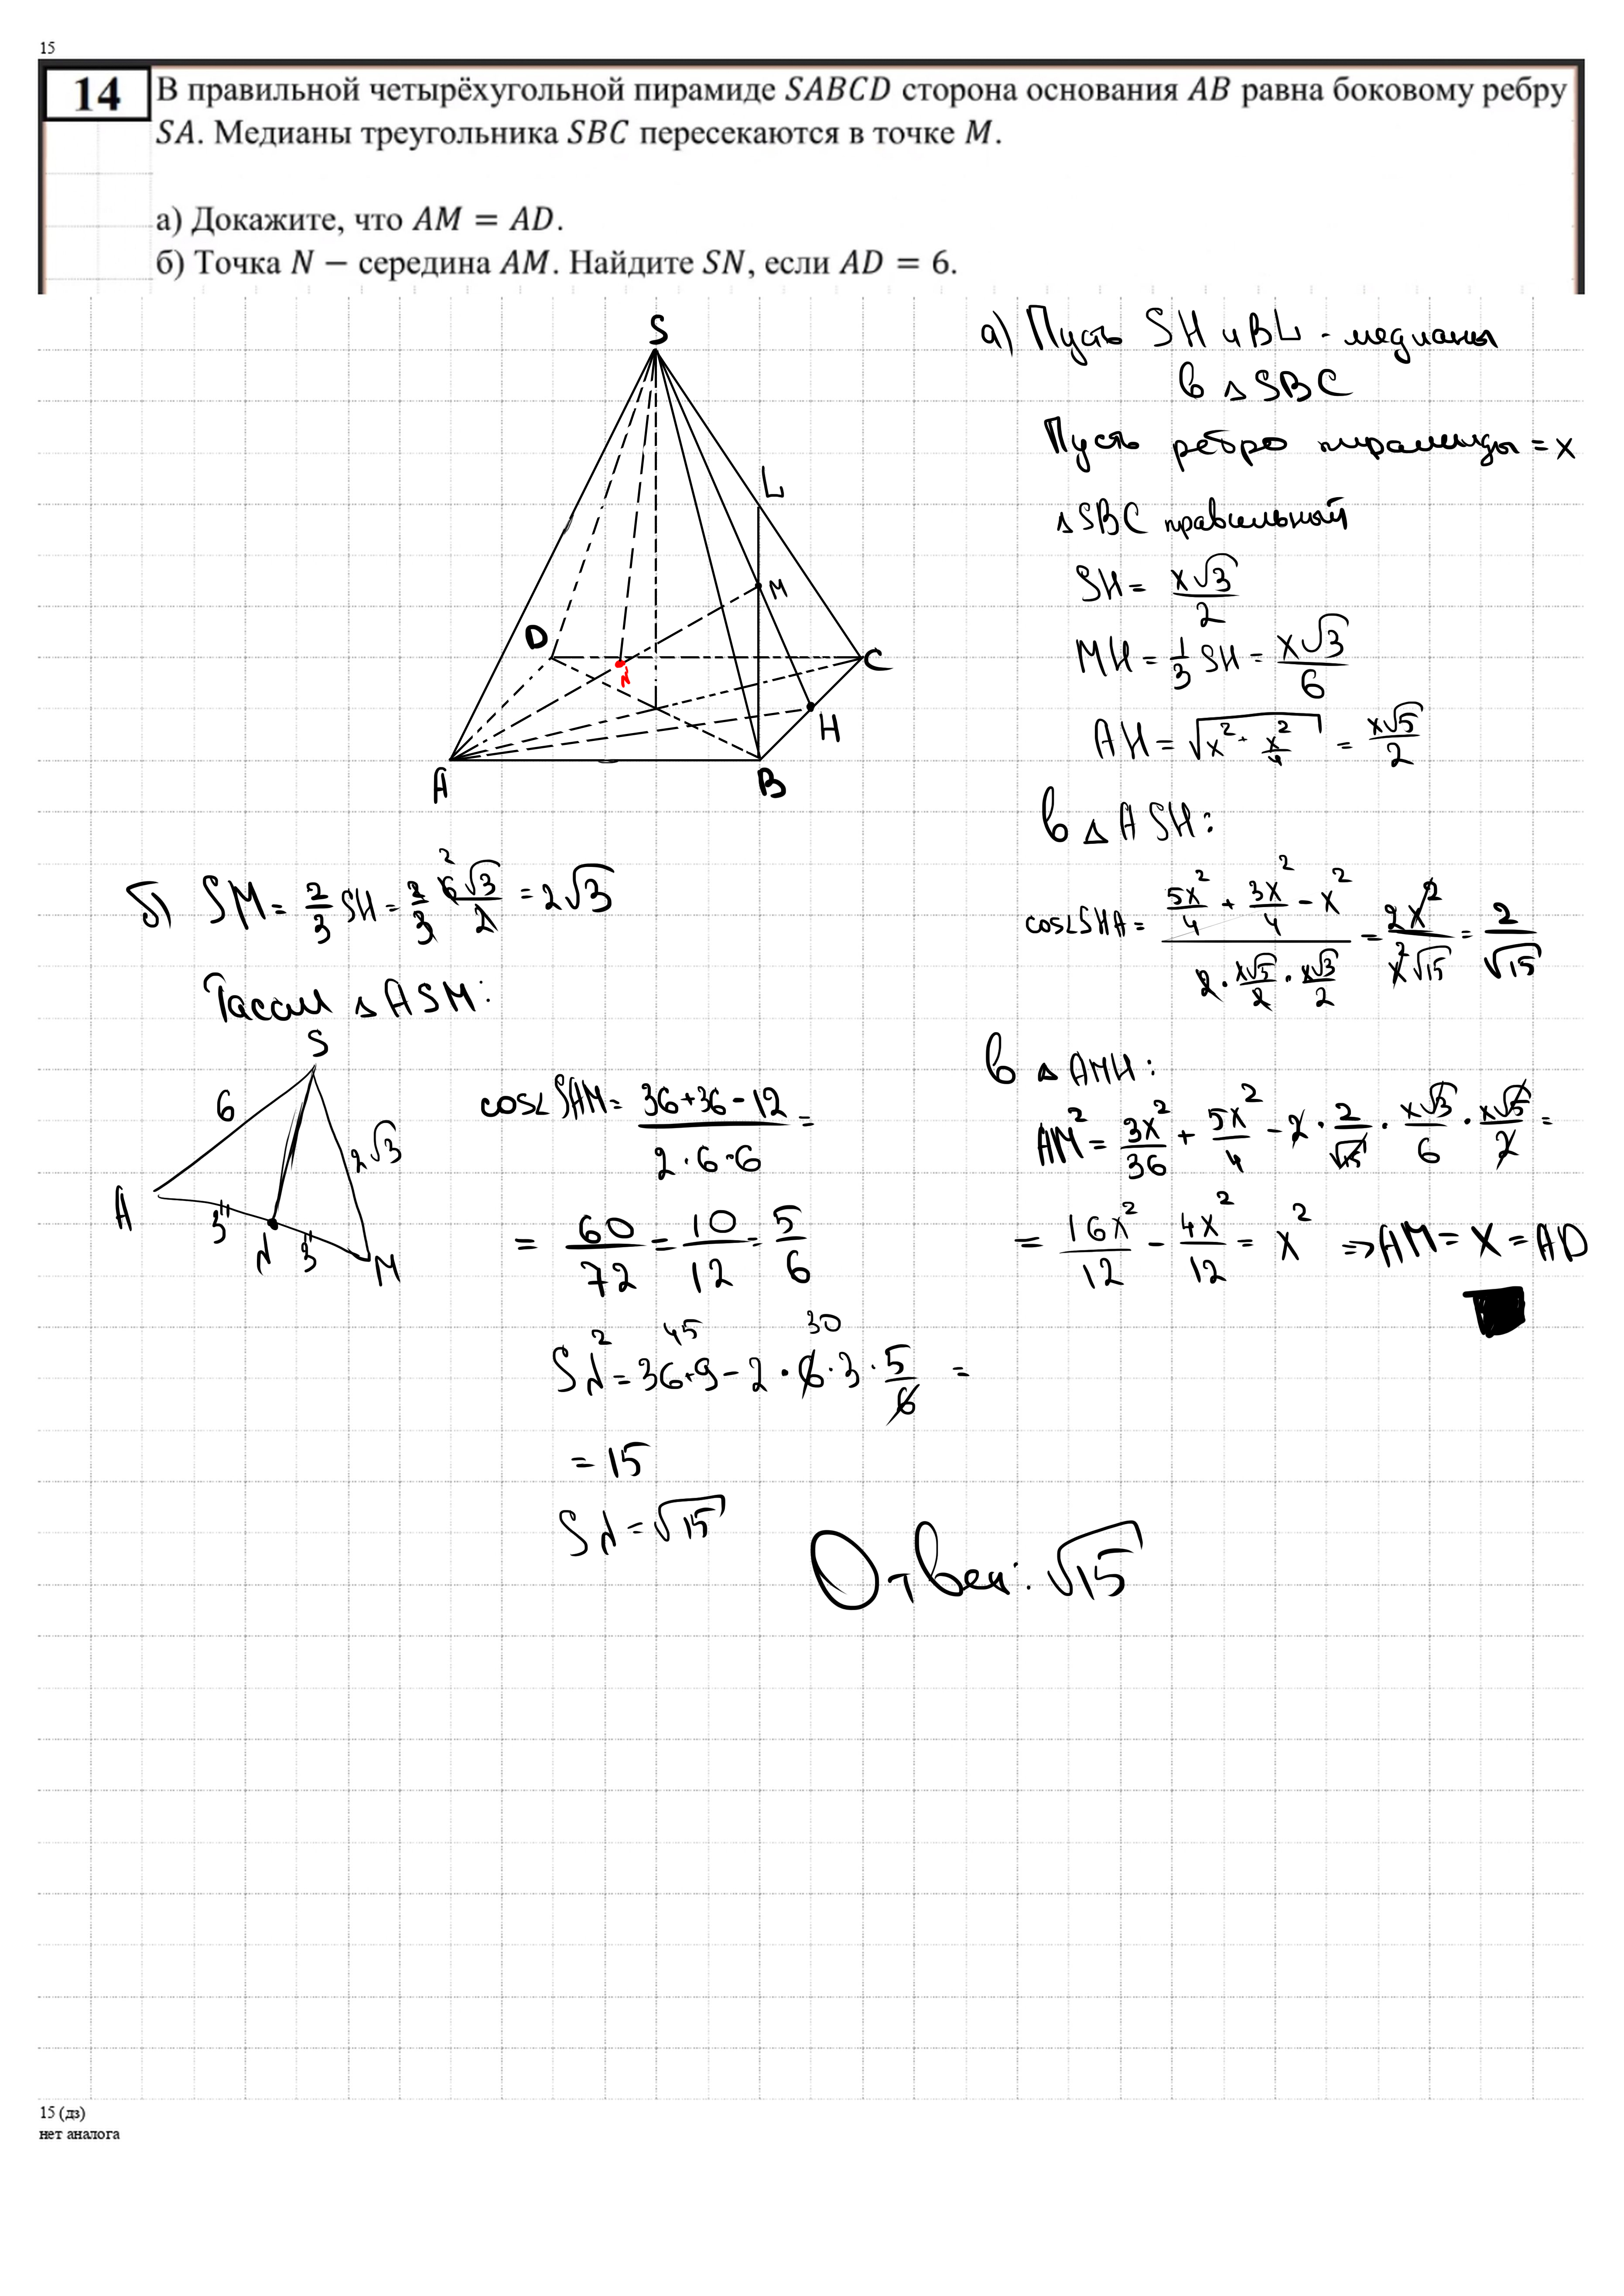 15
14
В правильной четырёхугольной пирамиде SABCD сторона основания AB равна боковому ребру
SA. Медианы треугольника SBC пересекаются в точке M.
а) Докажите, что AM = AD.
б) Точка N − середина AM. Найдите SN, если AD = 6.
S
L
M
D
N
C
H
A
B
а) Пусть SH и BL - медианы
в △SBC
Пусть ребро пирамиды = x
△SBC правильный
SH = x√3/2
MH = 1/3 SH = x√3/6
AH = √(x² + x²/4) = x√5/2
В △ASH:
cos∠SHA = (5x²/4 + 3x²/4 − x²)/(2 · x√5/2 · x√3/2) = 2x²/(x²√15) = 2/√15
В △AMH:
AM² = 3x²/36 + 5x²/4 − 2 · 2/√15 · x√3/6 · x√5/2 =
= 16x²/12 − 4x²/12 = x² ⇒ AM = x = AD
б) SM = 2/3 SH = 2/3 · 6√3/2 = 2√3
2
△ASM:
S
6
2√3
A
3
N
3
M
cos∠SAM = (36+36−12)/(2·6·6) =
= 60/72 = 10/12 = 5/6
45
30
SN² = 36+9 − 2 · 6 · 3 · 5/6 =
= 15
SN = √15
Ответ: √15
15 (дз)
нет аналога